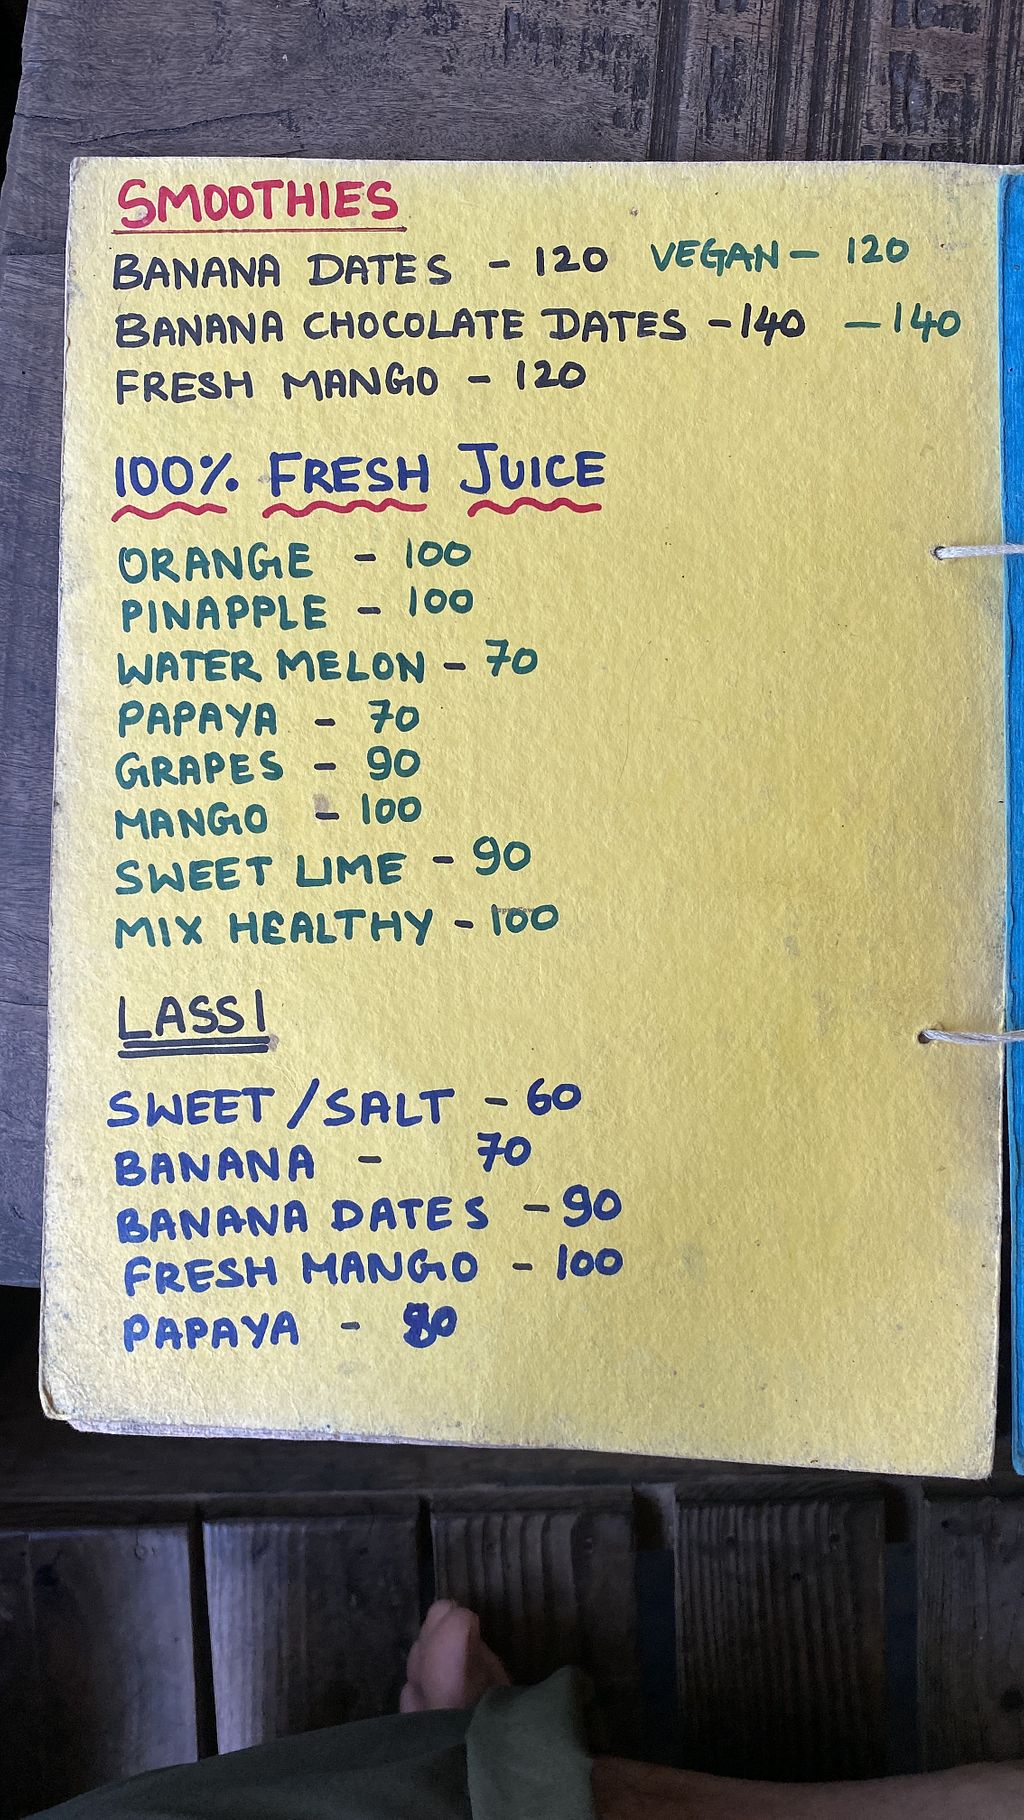 SMOOTHIES
BANANA DATES - 120 VEGAN - 120
BANANA CHOCOLATE DATES - 140 - 140
FRESH MANGO - 120
100% FRESH JUICE
ORANGE - 100
PINAPPLE - 100
WATER MELON - 70
PAPAYA - 70
GRAPES - 90
MANGO - 100
SWEET LIME - 90
MIX HEALTHY - 100
LASSI
SWEET / SALT - 60
BANANA - 70
BANANA DATES - 90
FRESH MANGO - 100
PAPAYA - 80